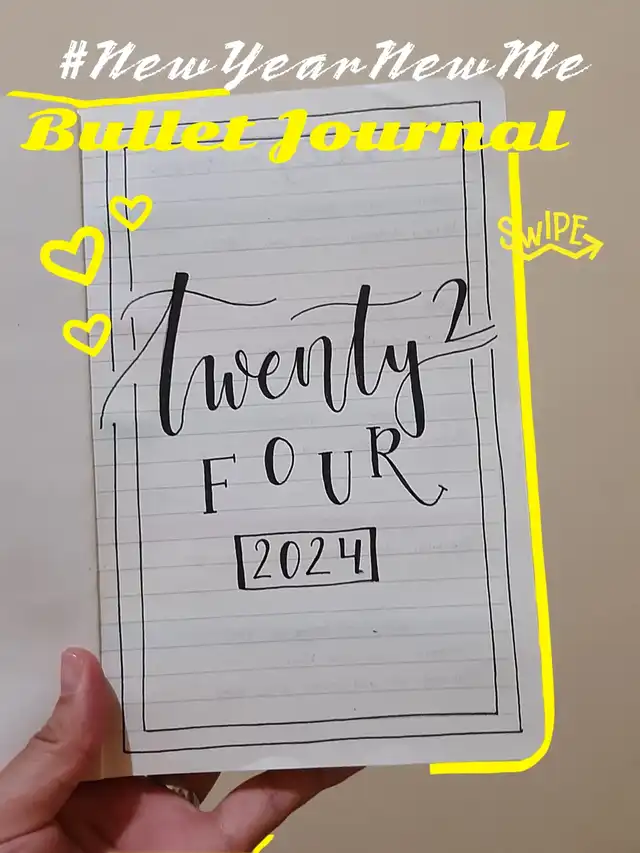 #NewYearNewMe
Bullet Journal
SWIPE
twenty
FOUR
2024